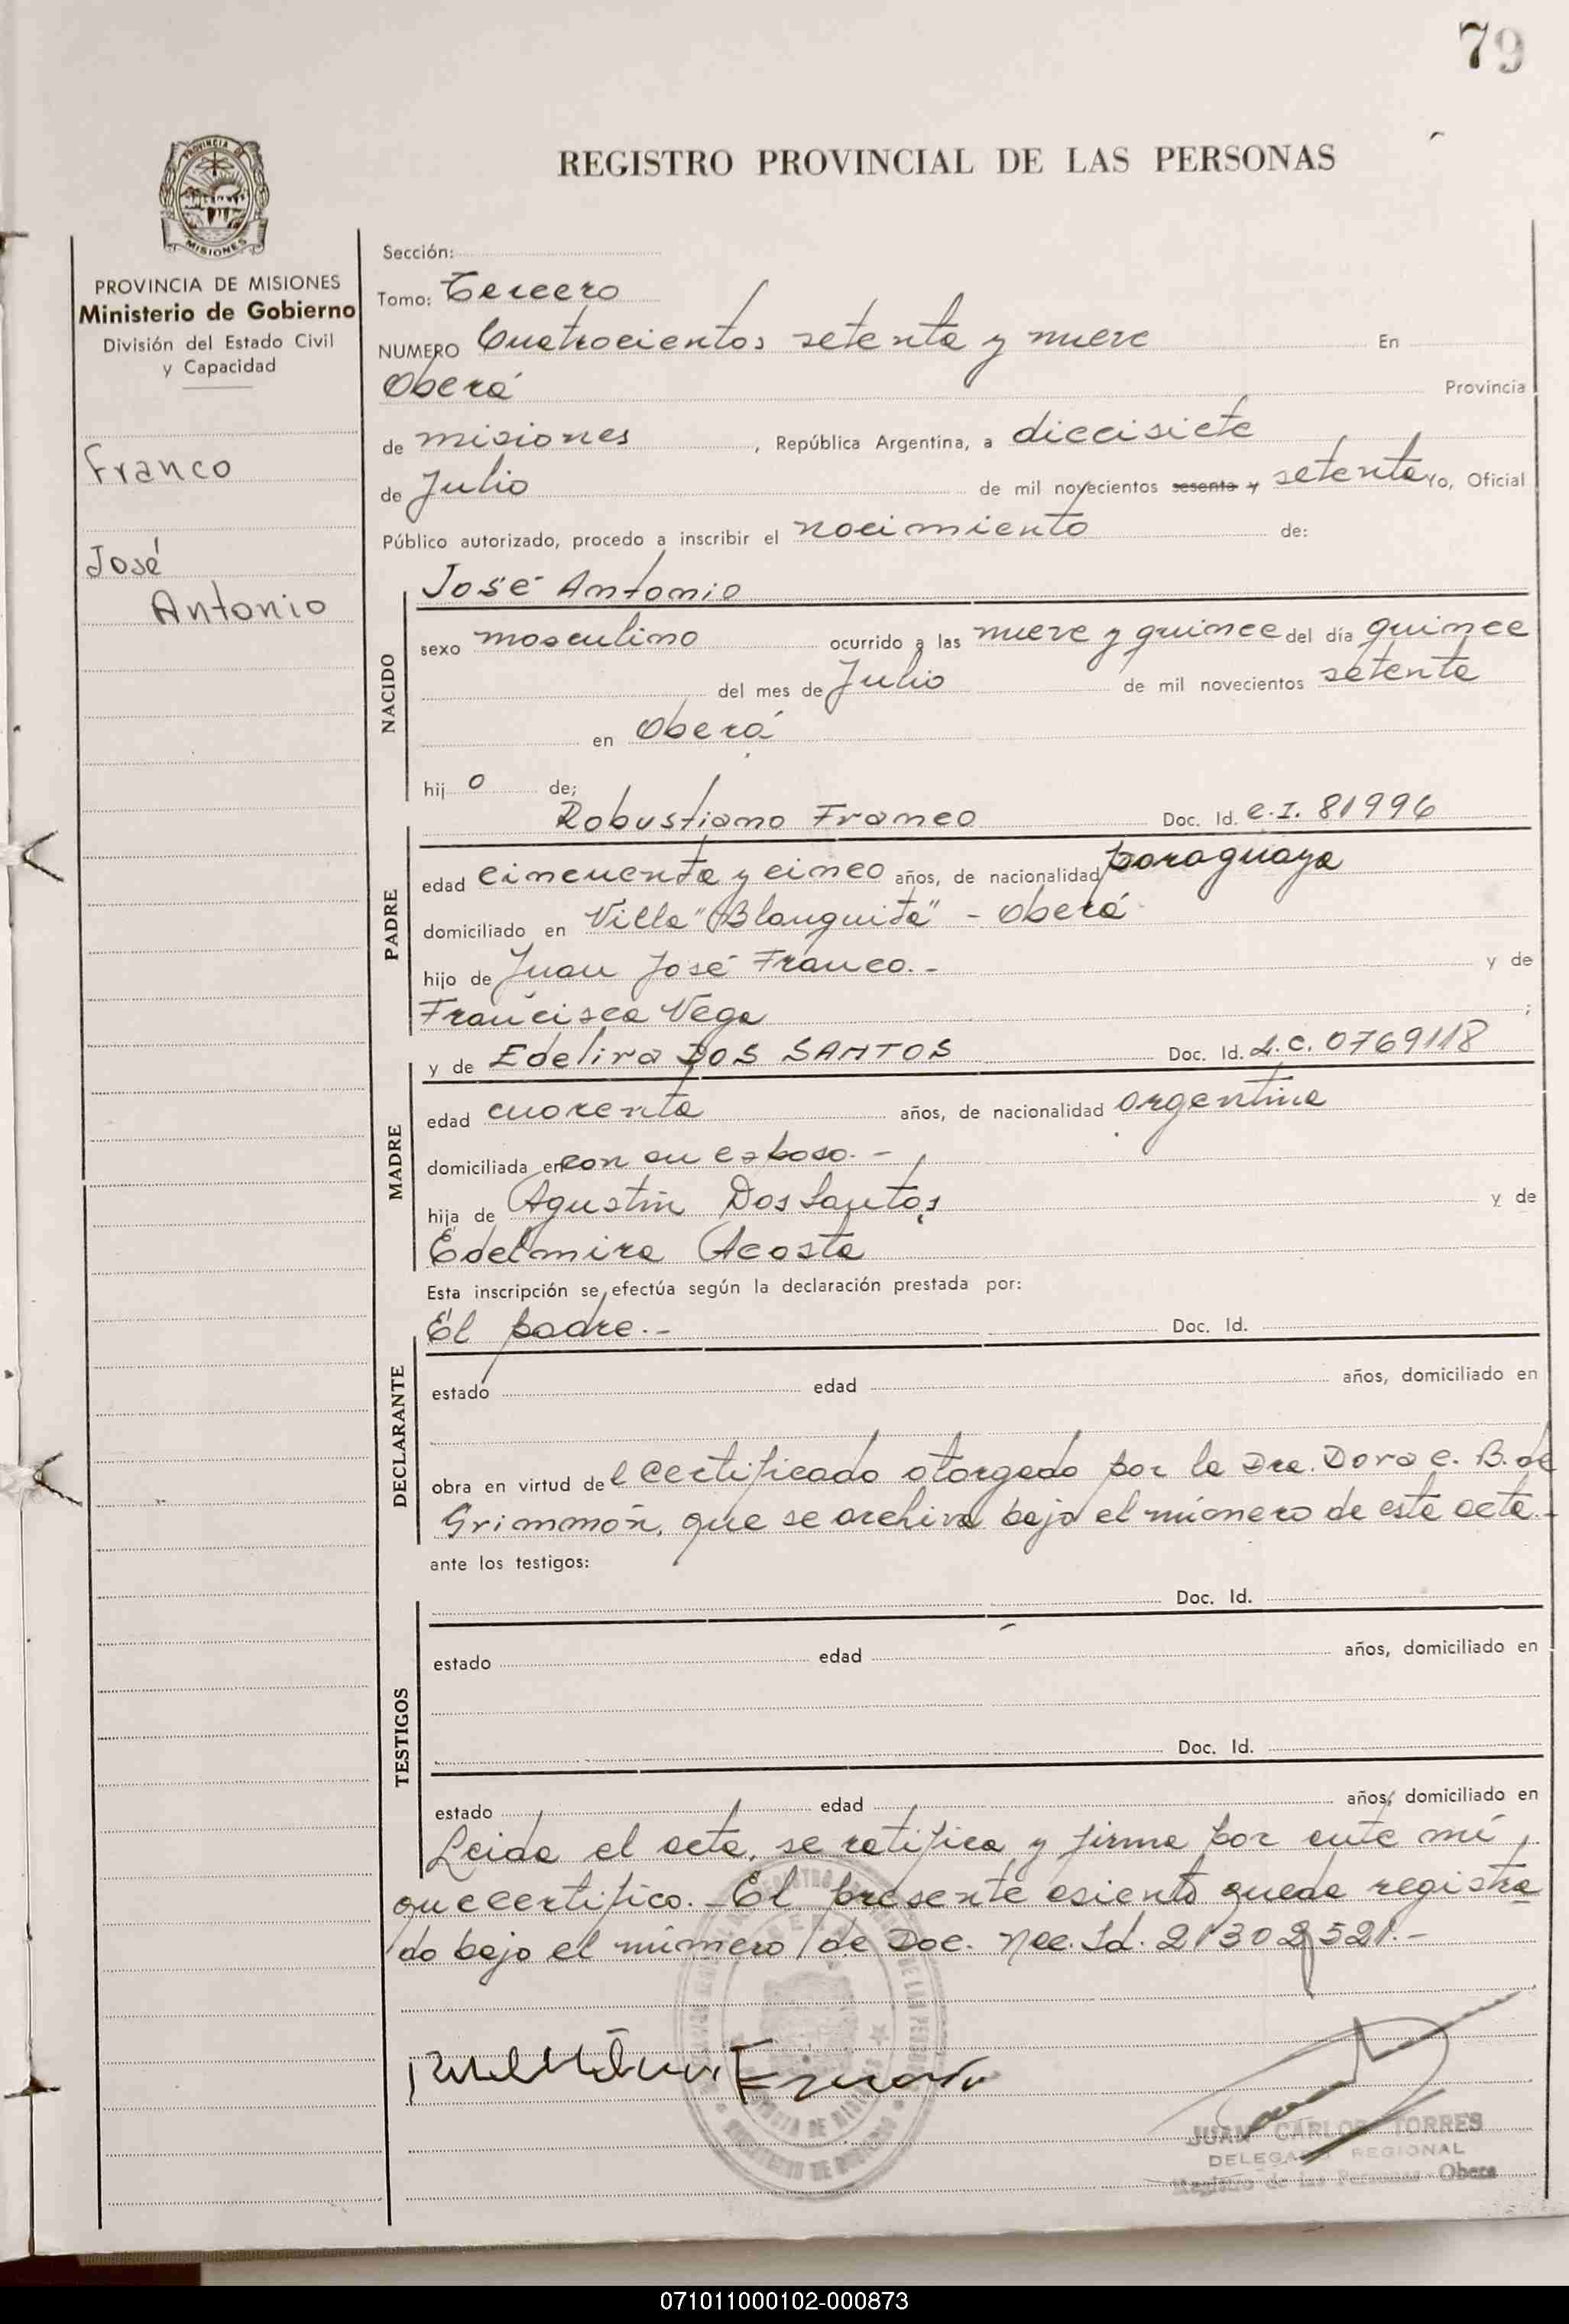 79
REGISTRO PROVINCIAL DE LAS PERSONAS
PROVINCIA DE
MISIONES
PROVINCIA DE MISIONES
Ministerio de Gobierno
División del Estado Civil
y Capacidad
Franco
José
Antonio
Sección:
Tomo: Tercero
NUMERO Cuatrocientos setenta y nueve En
Oberá Provincia
de misiones, República Argentina, a diecisiete
de Julio de mil novecientos sesenta y setenta Yo, Oficial
Público autorizado, procedo a inscribir el nacimiento de:
NACIDO
José Antonio
sexo masculino ocurrido a las nueve y quince del día quince
del mes de Julio de mil novecientos setenta
en Oberá
hijo de;
PADRE
Robustiano Franco Doc. Id. C.I. 81996
edad cincuenta y cinco años, de nacionalidad paraguaya
domiciliado en Villa "Blanquita" - Oberá
hijo de Juan José Franco.- y de
Francisca Vega ;
MADRE
y de Edelira DOS SANTOS Doc. Id. L.C. 0769118
edad cuarenta años, de nacionalidad argentina
domiciliada en con su esposo.-
hija de Agustín Dos Santos y de
Edelmira Acosta
Esta inscripción se efectúa según la declaración prestada por:
DECLARANTE
El padre.- Doc. Id.
estado edad años, domiciliado en
obra en virtud del certificado otorgado por la Dra. Dora C. B. de
Grimmón, que se archiva bajo el número de este acta.-
ante los testigos:
TESTIGOS
Doc. Id.
estado edad años, domiciliado en
Doc. Id.
estado edad años, domiciliado en
Leida el acta, se ratifica y firma por ante mí,
que certifico.- El presente asiento queda registra
do bajo el número de Doc. Nac. Id. 21302521.-
JUAN CARLOS TORRES
DELEGADO REGIONAL
Registro de las Personas - Obera
071011000102-000873